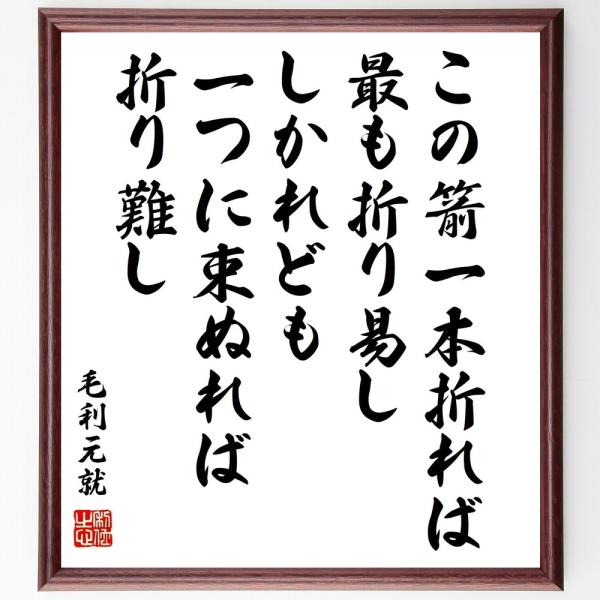 この箭一本折れば
最も折り易し
しかれども
一つに束ぬれば
折り難し
毛利元就